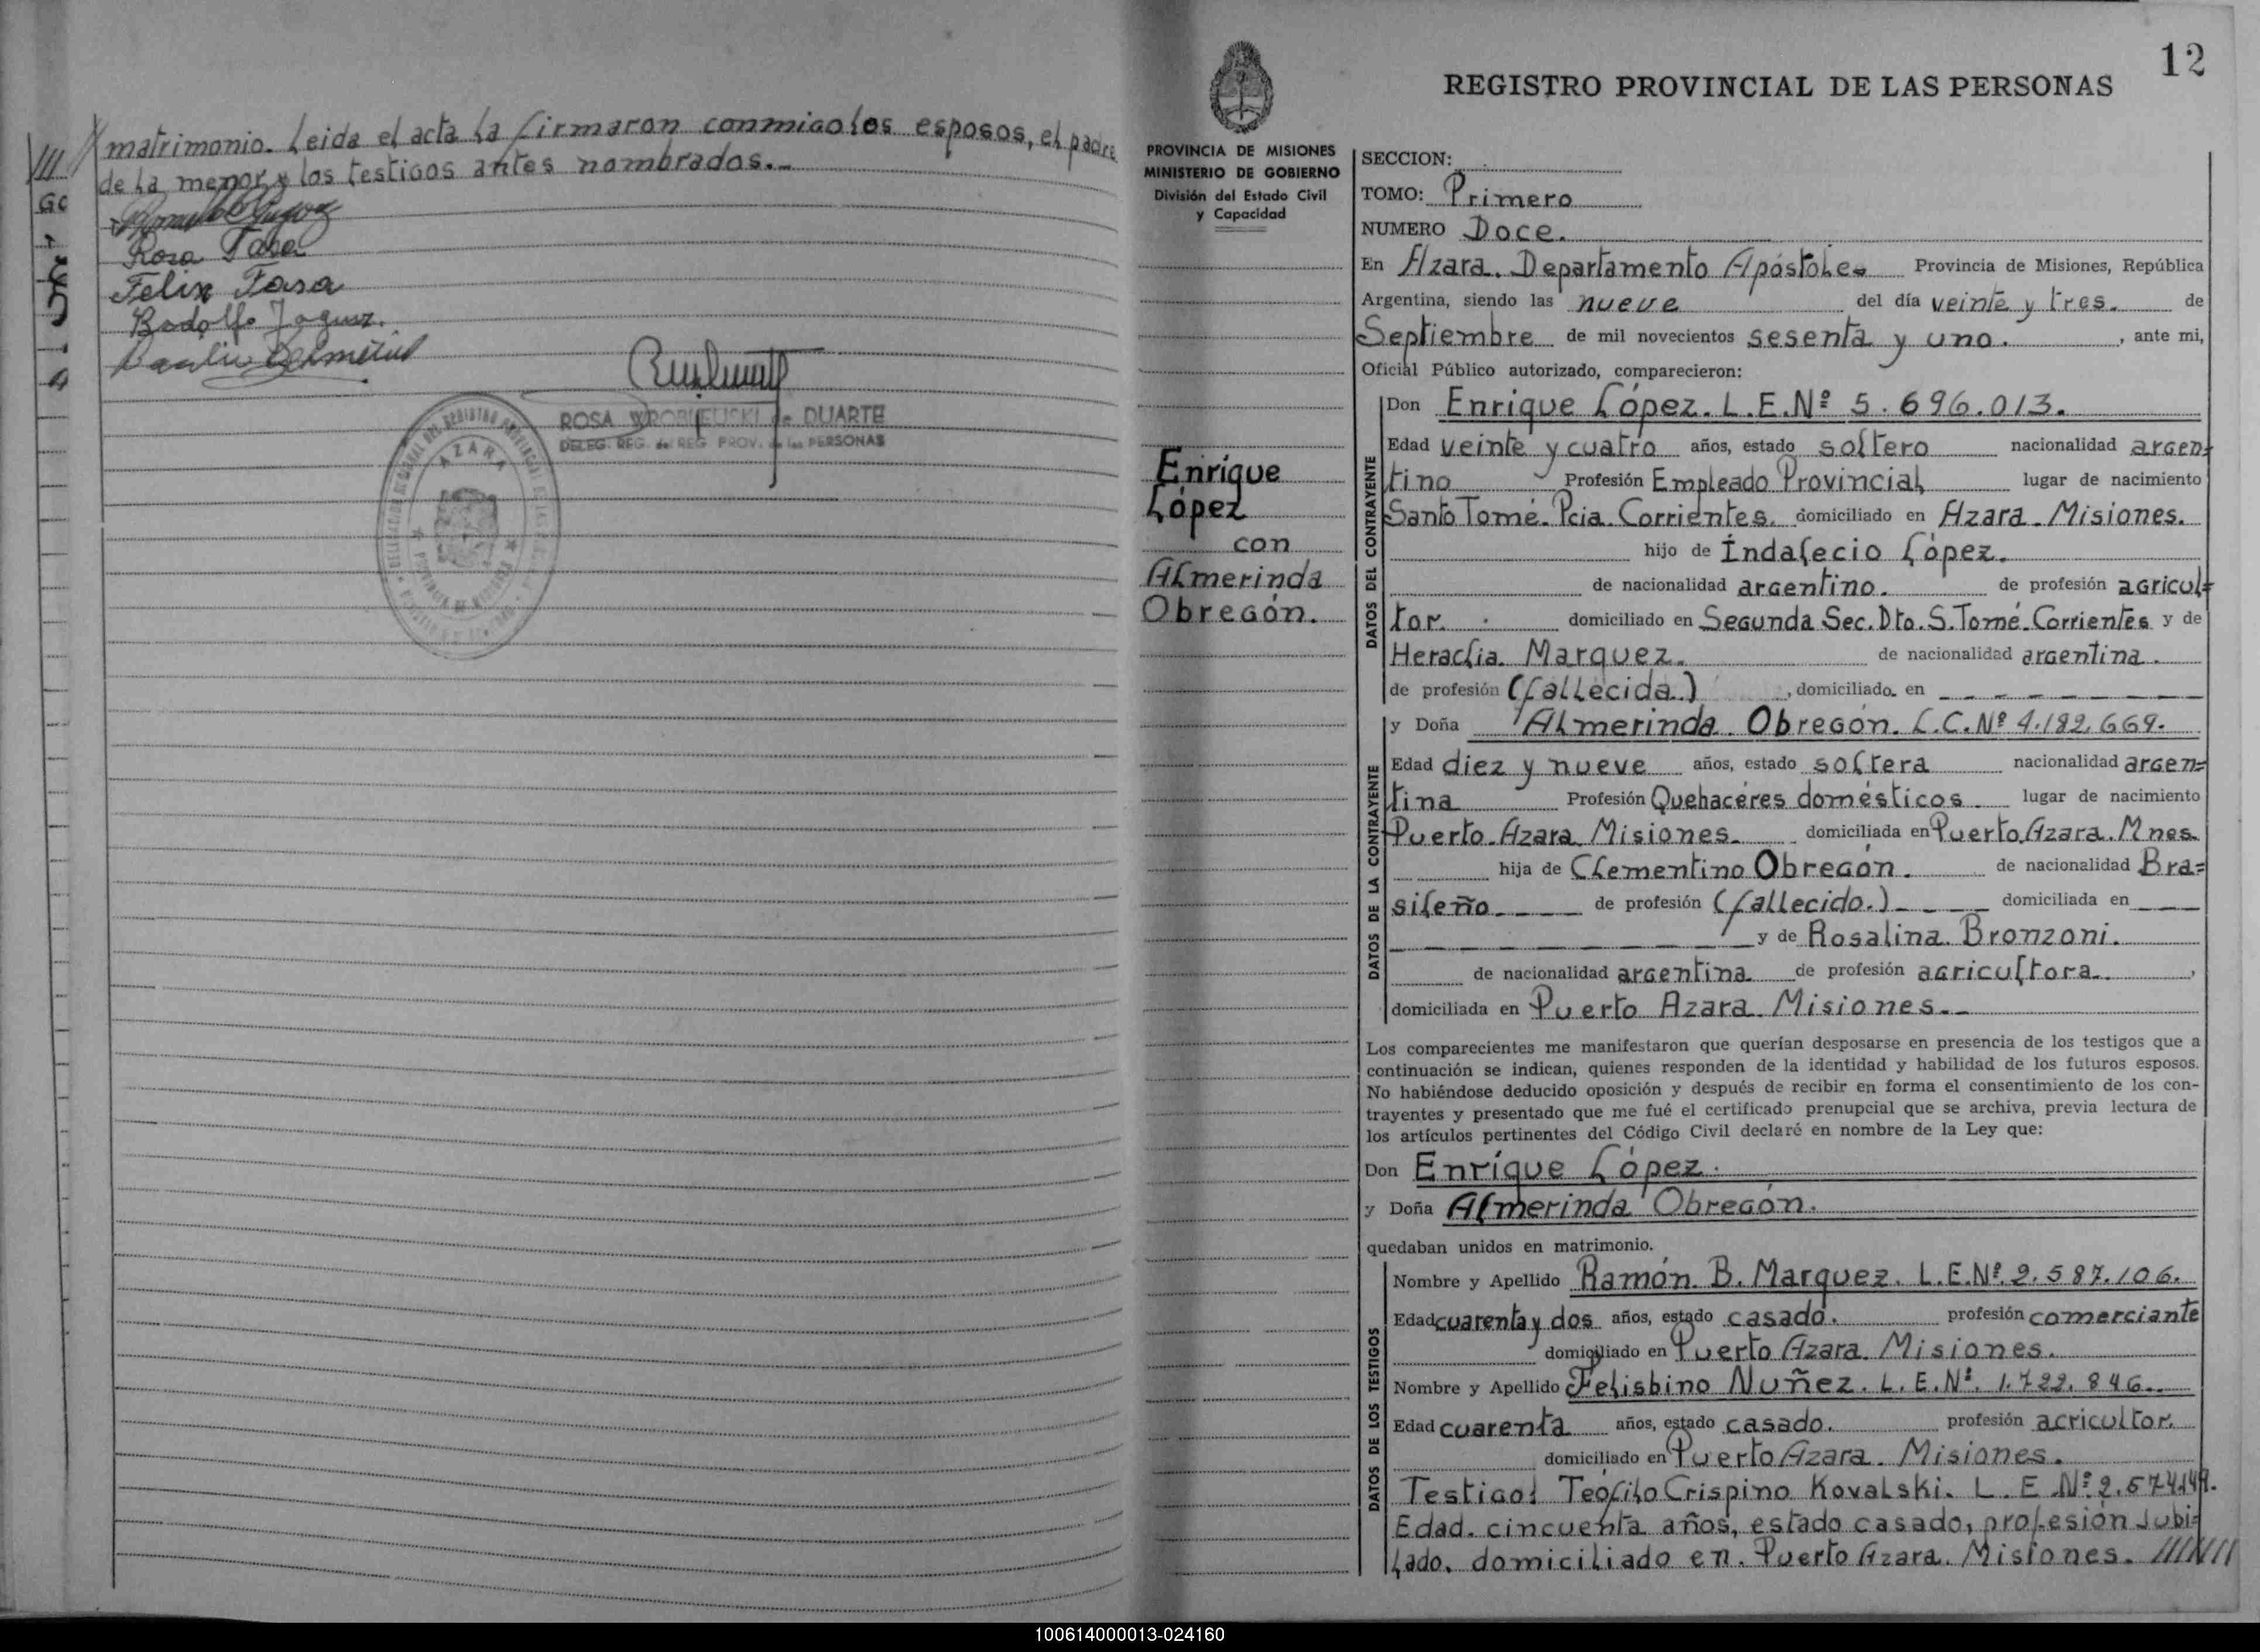 matrimonio. Leida el acta la firmaron conmigo los esposos, el padre
de la menor y los testigos antes nombrados.-
Rosa Tasa
Felix Tasa
Rodolfo
ROSA WROBLEUSKI de DUARTE
DELEG. REG. del REG. PROV. de las PERSONAS
AZARA
12
REGISTRO PROVINCIAL DE LAS PERSONAS
PROVINCIA DE MISIONES
MINISTERIO DE GOBIERNO
División del Estado Civil
y Capacidad
Enrique
López
con
Almerinda
Obregón.
SECCION:
TOMO: Primero
NUMERO Doce.
En Azara. Departamento Apóstoles Provincia de Misiones, República
Argentina, siendo las nueve del día veinte y tres. de
Septiembre de mil novecientos sesenta y uno. , ante mi,
Oficial Público autorizado, comparecieron:
DATOS DEL CONTRAYENTE
Don Enrique López. L.E.Nº 5.696.013.
Edad veinte y cuatro años, estado soltero nacionalidad argen=
tino Profesión Empleado Provincial lugar de nacimiento
Santo Tomé. Pcia. Corrientes. domiciliado en Azara. Misiones.
hijo de Indalecio López.
de nacionalidad argentino. de profesión agricul=
tor. domiciliado en Segunda Sec. Dto. S. Tomé. Corrientes y de
Heraclia. Marquez. de nacionalidad argentina.
de profesión (fallecida.) , domiciliado en _ _ _ _ _ _ _ _
DATOS DE LA CONTRAYENTE
y Doña Almerinda Obregón. L.C.Nº 4.182.669.
Edad diez y nueve años, estado soltera nacionalidad argen=
tina Profesión Quehaceres domésticos. lugar de nacimiento
Puerto Azara Misiones. domiciliada en Puerto Azara. Mnes.
hija de Clementino Obregón. de nacionalidad Bra=
sileño de profesión (fallecido.) domiciliada en
y de Rosalina Bronzoni.
de nacionalidad argentina de profesión agricultora. ,
domiciliada en Puerto Azara. Misiones.-
Los comparecientes me manifestaron que querían desposarse en presencia de los testigos que a
continuación se indican, quienes responden de la identidad y habilidad de los futuros esposos.
No habiéndose deducido oposición y después de recibir en forma el consentimiento de los con-
trayentes y presentado que me fué el certificado prenupcial que se archiva, previa lectura de
los artículos pertinentes del Código Civil declaré en nombre de la Ley que:
Don Enrique López.
y Doña Almerinda Obregón.
quedaban unidos en matrimonio.
DATOS DE LOS TESTIGOS
Nombre y Apellido Ramón. B. Marquez. L.E.Nº. 2.587.106.
Edad cuarenta y dos años, estado casado. profesión comerciante
domiciliado en Puerto Azara. Misiones.
Nombre y Apellido Felisbino Nuñez. L.E.Nº. 1.722.846.
Edad cuarenta años, estado casado. profesión acricultor.
domiciliado en Puerto Azara. Misiones.
Testigo: Teófilo Crispino Kovalski. L. E Nº
Edad. cincuenta años, estado casado, profesión Jubi=
lado. domiciliado en. Puerto Azara. Misiones. ///////
100614000013-024160